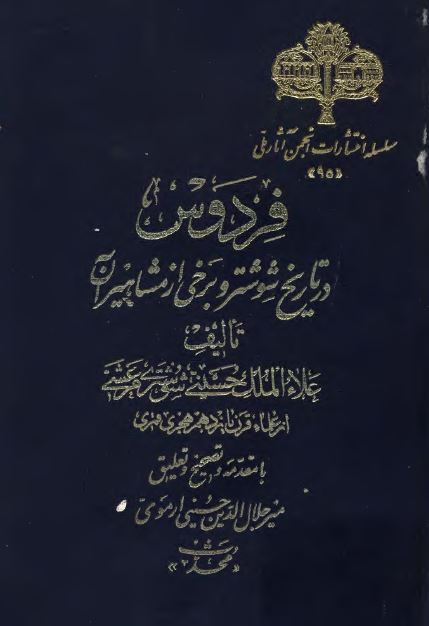 سلسله انتشارات انجمن آثار ملی
«۹۵»
فِردَوس
در تاریخ شوشتر و برخی از مشاهیر آن
تألیف
علاء الملک حسینی شوشتری مرعشی
از علماء قرن یازدهم هجری قمری
با مقدمه و تصحیح و تعلیق
میر جلال الدین حسینی ارموی
«محدث»